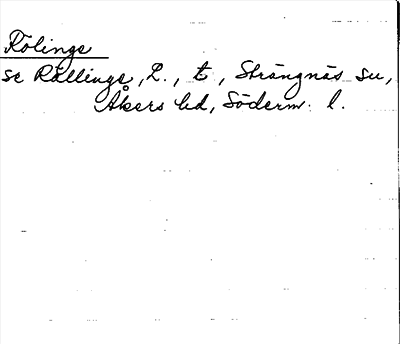 Rölinge
se Rällinge, L., t, Strängnäs su,
Åkers hd, Söderm. l.